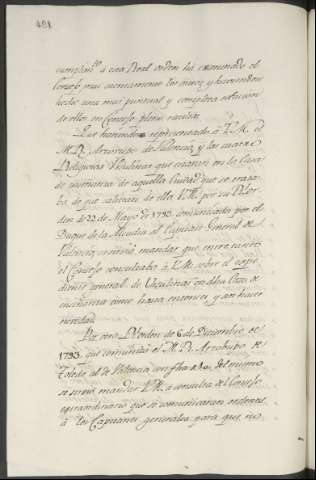 401
cumplim.to a esta Real orden ha examinado el
Consejo mui
hecho una mas puntual y completa
de ellos en Consejo pleno
Que haviendo representado á V.M. el
M.R. Arzobispo de Valencia, y las quatro
Religiosas Ursulinas que existen en la Casa
de enseñanza de aquella Ciudad, que se trata
ba de que saliesen de ella, V.M. por su Rl or
den de 22 de Mayo de 1793, comunicada por el
Duque de la Alcudia al Capitan General de
Valencia, se sirvió mandar que entre tanto
el Consejo consultaba á V.M. sobre el espe
diente general de Ursulinas en dha Casa de
enseñanza como hasta entonces, y sin hacer
novedad.
Por otra Rl orden de 6 de Diciembre de
1793, que comunicó el M.R. Arzobispo de
Toledo al de Valencia con fha del mismo
se sirvió mandar V.M. á consulta del Consejo
extraordinario que se comunicasen ordenes
á los Capitanes generales para que no